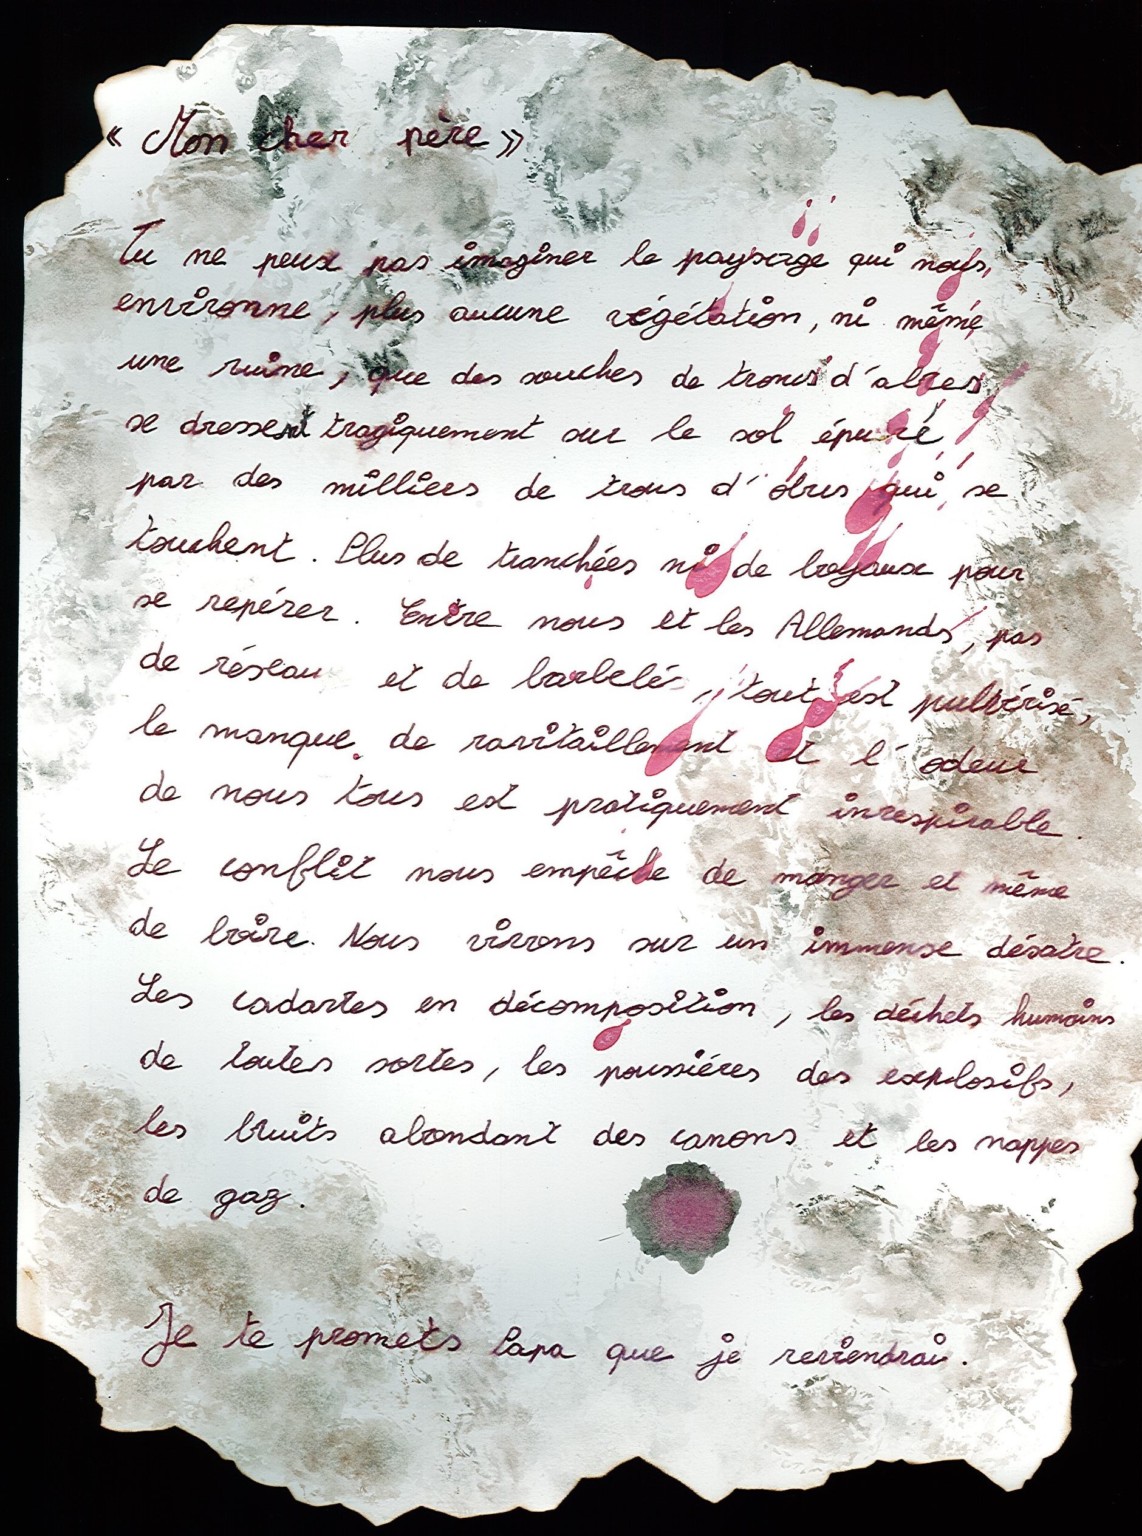 « Mon cher père »
Tu ne peux pas imaginer le paysage qui nous,
environne, plus aucune végétation, ni même
une ruine, que des souches de troncs d'abres
se dressent tragiquement sur le sol épuré
par des milliers de trous d'obus qui se
touchent. Plus de tranchées ni de boyaux pour
se repérer. Entre nous et les Allemands, pas
de réseau et de barbelé, tout est pulvérisé,
le manque de ravitaillement et l'odeur
de nous tous est pratiquement irrespirable.
Le conflit nous empêche de manger et même
de boire. Nous vivons sur un immense désatre.
Les cadavres en décomposition, les déchets humains
de toutes sortes, les poussiéres des explosifs,
les bruits abondant des canons et les nappes
de gaz.
Je te promets Papa que je reviendrai.